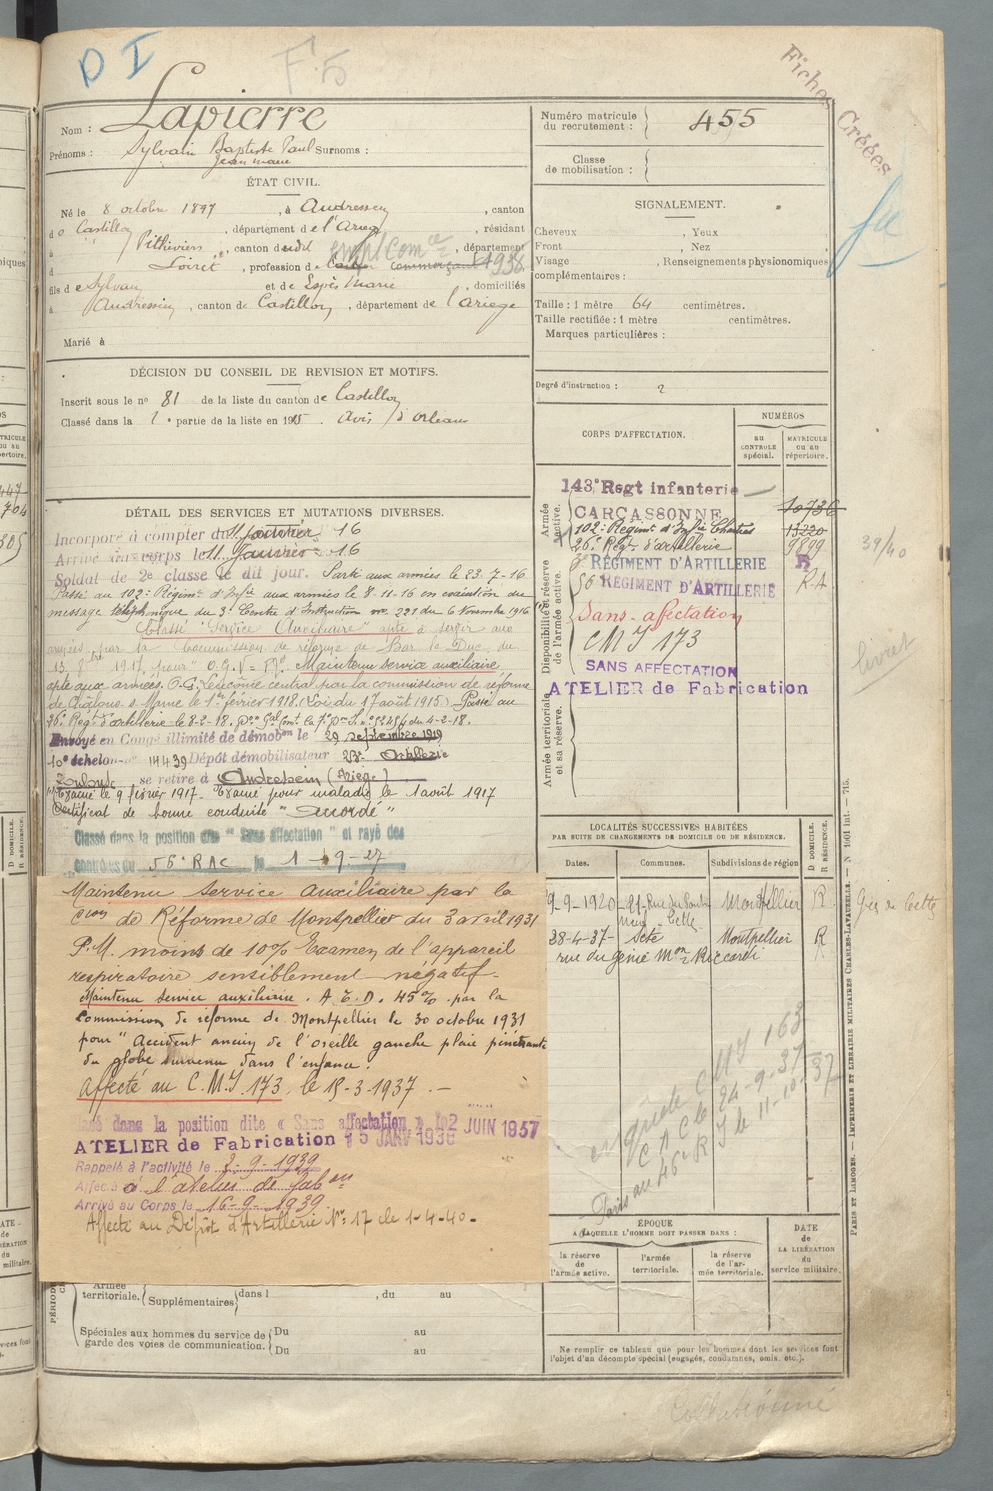 D I
F.5
Fiches Créées
Nom : Lapierre
Prénoms : Sylvain Baptiste Paul Surnoms :
Jean marie
ÉTAT CIVIL.
Né le 8 octobre 1897, à Audressein, canton
do Castillon, département de l'Arieg, résidant
à Pithiviers, canton de du dit, département
d Loiret, profession de commerçant
empl Com ce 1938
fils de Sylvain et de Espès Marie, domiciliés
à Audressein, canton de Castillon, département de l'ariege
Marié à
DÉCISION DU CONSEIL DE REVISION ET MOTIFS.
Inscrit sous le no 81 de la liste du canton de Castillon
Classé dans la 1e partie de la liste en 1915. Avis d'Orléans
DÉTAIL DES SERVICES ET MUTATIONS DIVERSES.
Incorporé à compter du 11 janvier 16
Arrivé au corps le 11 janvier 16
Soldat de 2e classe le dit jour. Parti aux armées le 23.7-16
Passé au 102e Régimt d'Infie aux armées le 8-11-16 en exécution du
message téléphonique du 3e Centre d'Instruction no 221 du 6 Novembre 1916
Classé "Service Auxiliaire" apte à servir aux
armées par la Commission de réforme de Bar le Duc du
13 1917 pour "O.G.V= Maintenu service auxiliaire
apte aux armées. O.G. central par la commission de réforme
de Châlons s. Marne le 1er février 1918 (Loi du 17 août 1915) Passé au
26e Régt d'artillerie le 8-2-18. du 4-2-18.
Envoyé en Congé illimité de démobon le 29 septembre 1919
10e échelon no 14439 Dépôt démobilisateur 23e Artillerie
Toulouse se retire à Audressein (Ariège)
Evacué le 9 février 1917. Evacué pour maladie le 1 août 1917
Certificat de bonne conduite "Accordé"
Classé dans la position dite "Sans affectation" et rayé des
contrôles du 56e RAC le 1-9-27
Maintenu service auxiliaire par la
Cion de Réforme de Montpellier du 3 avril 1931
P.M. moins de 10% Examen de l'appareil
respiratoire sensiblement négatif.
Maintenu service auxiliaire. A.T.D. 45% par la
Commission de réforme de Montpellier le 30 octobre 1931
pour "Accident ancien de l'oreille gauche plaie pénétrante
du globe survenu dans l'enfance.
Affecté au C.M.I. 173, le 15-3-1937.-
Classé dans la position dite « Sans affectation » le 2 JUIN 1957
ATELIER de Fabrication 15 JANV 1938
Rappelé à l'activité le 2-9-1939
Affecté à l'atelier de fabon
Arrivé au Corps le 16-9-1939
Affecté au Dépôt d'Artillerie No 17 le 1-4-40-
Armée territoriale. Supplémentaires dans l, du au
Spéciales aux hommes du service de garde des voies de communication. Du au
Du au
Numéro matricule du recrutement : 455
Classe de mobilisation :
SIGNALEMENT.
Cheveux, Yeux
Front, Nez
Visage, Renseignements physionomiques
complémentaires :
Taille : 1 mètre 64 centimètres.
Taille rectifiée : 1 mètre centimètres.
Marques particulières :
Degré d'instruction : 2
CORPS D'AFFECTATION.
NUMÉROS
au CONTRÔLE spécial.
MATRICULE ou au répertoire.
Armée active.
Disponibilité et réserve de l'armée active.
Armée territoriale et sa réserve.
143e Regt infanterie 10736
CARCASSONNE
102e Régimt d'Infie Chartres 13220
26e Régt d'artillerie 9899
3e RÉGIMENT D'ARTILLERIE R
56 RÉGIMENT D'ARTILLERIE R.A
Sans affectation
CMI 173
SANS AFFECTATION
ATELIER de Fabrication
39/40
livret
LOCALITÉS SUCCESSIVES HABITÉES
PAR SUITE DE CHANGEMENTS DE DOMICILE OU DE RÉSIDENCE.
Dates. Communes. Subdivisions de région
D DOMICILE. R RÉSIDENCE.
9-9-1920 21 Rue du Pont neuf Cette Montpellier R
28-4-37 Sète Montpellier R
rue du génie Mon Riccardi
Gie de Cette
enquête CMI 163
CAC le 24-9-37
Paris au 46e RI le 11-10-37
ÉPOQUE
A LAQUELLE L'HOMME DOIT PASSER DANS :
la réserve de l'armée active.
l'armée territoriale.
la réserve de l'armée territoriale.
DATE de LA LIBÉRATION du service militaire.
Ne remplir ce tableau que pour les hommes dont les services font
l'objet d'un décompte spécial (engagés, condamnés, omis, etc.).
PARIS ET LIMOGES. — IMPRIMERIE ET LIBRAIRIE MILITAIRES CHARLES-LAVAUZELLE. — N 1001 Int. — 715.
Collationné